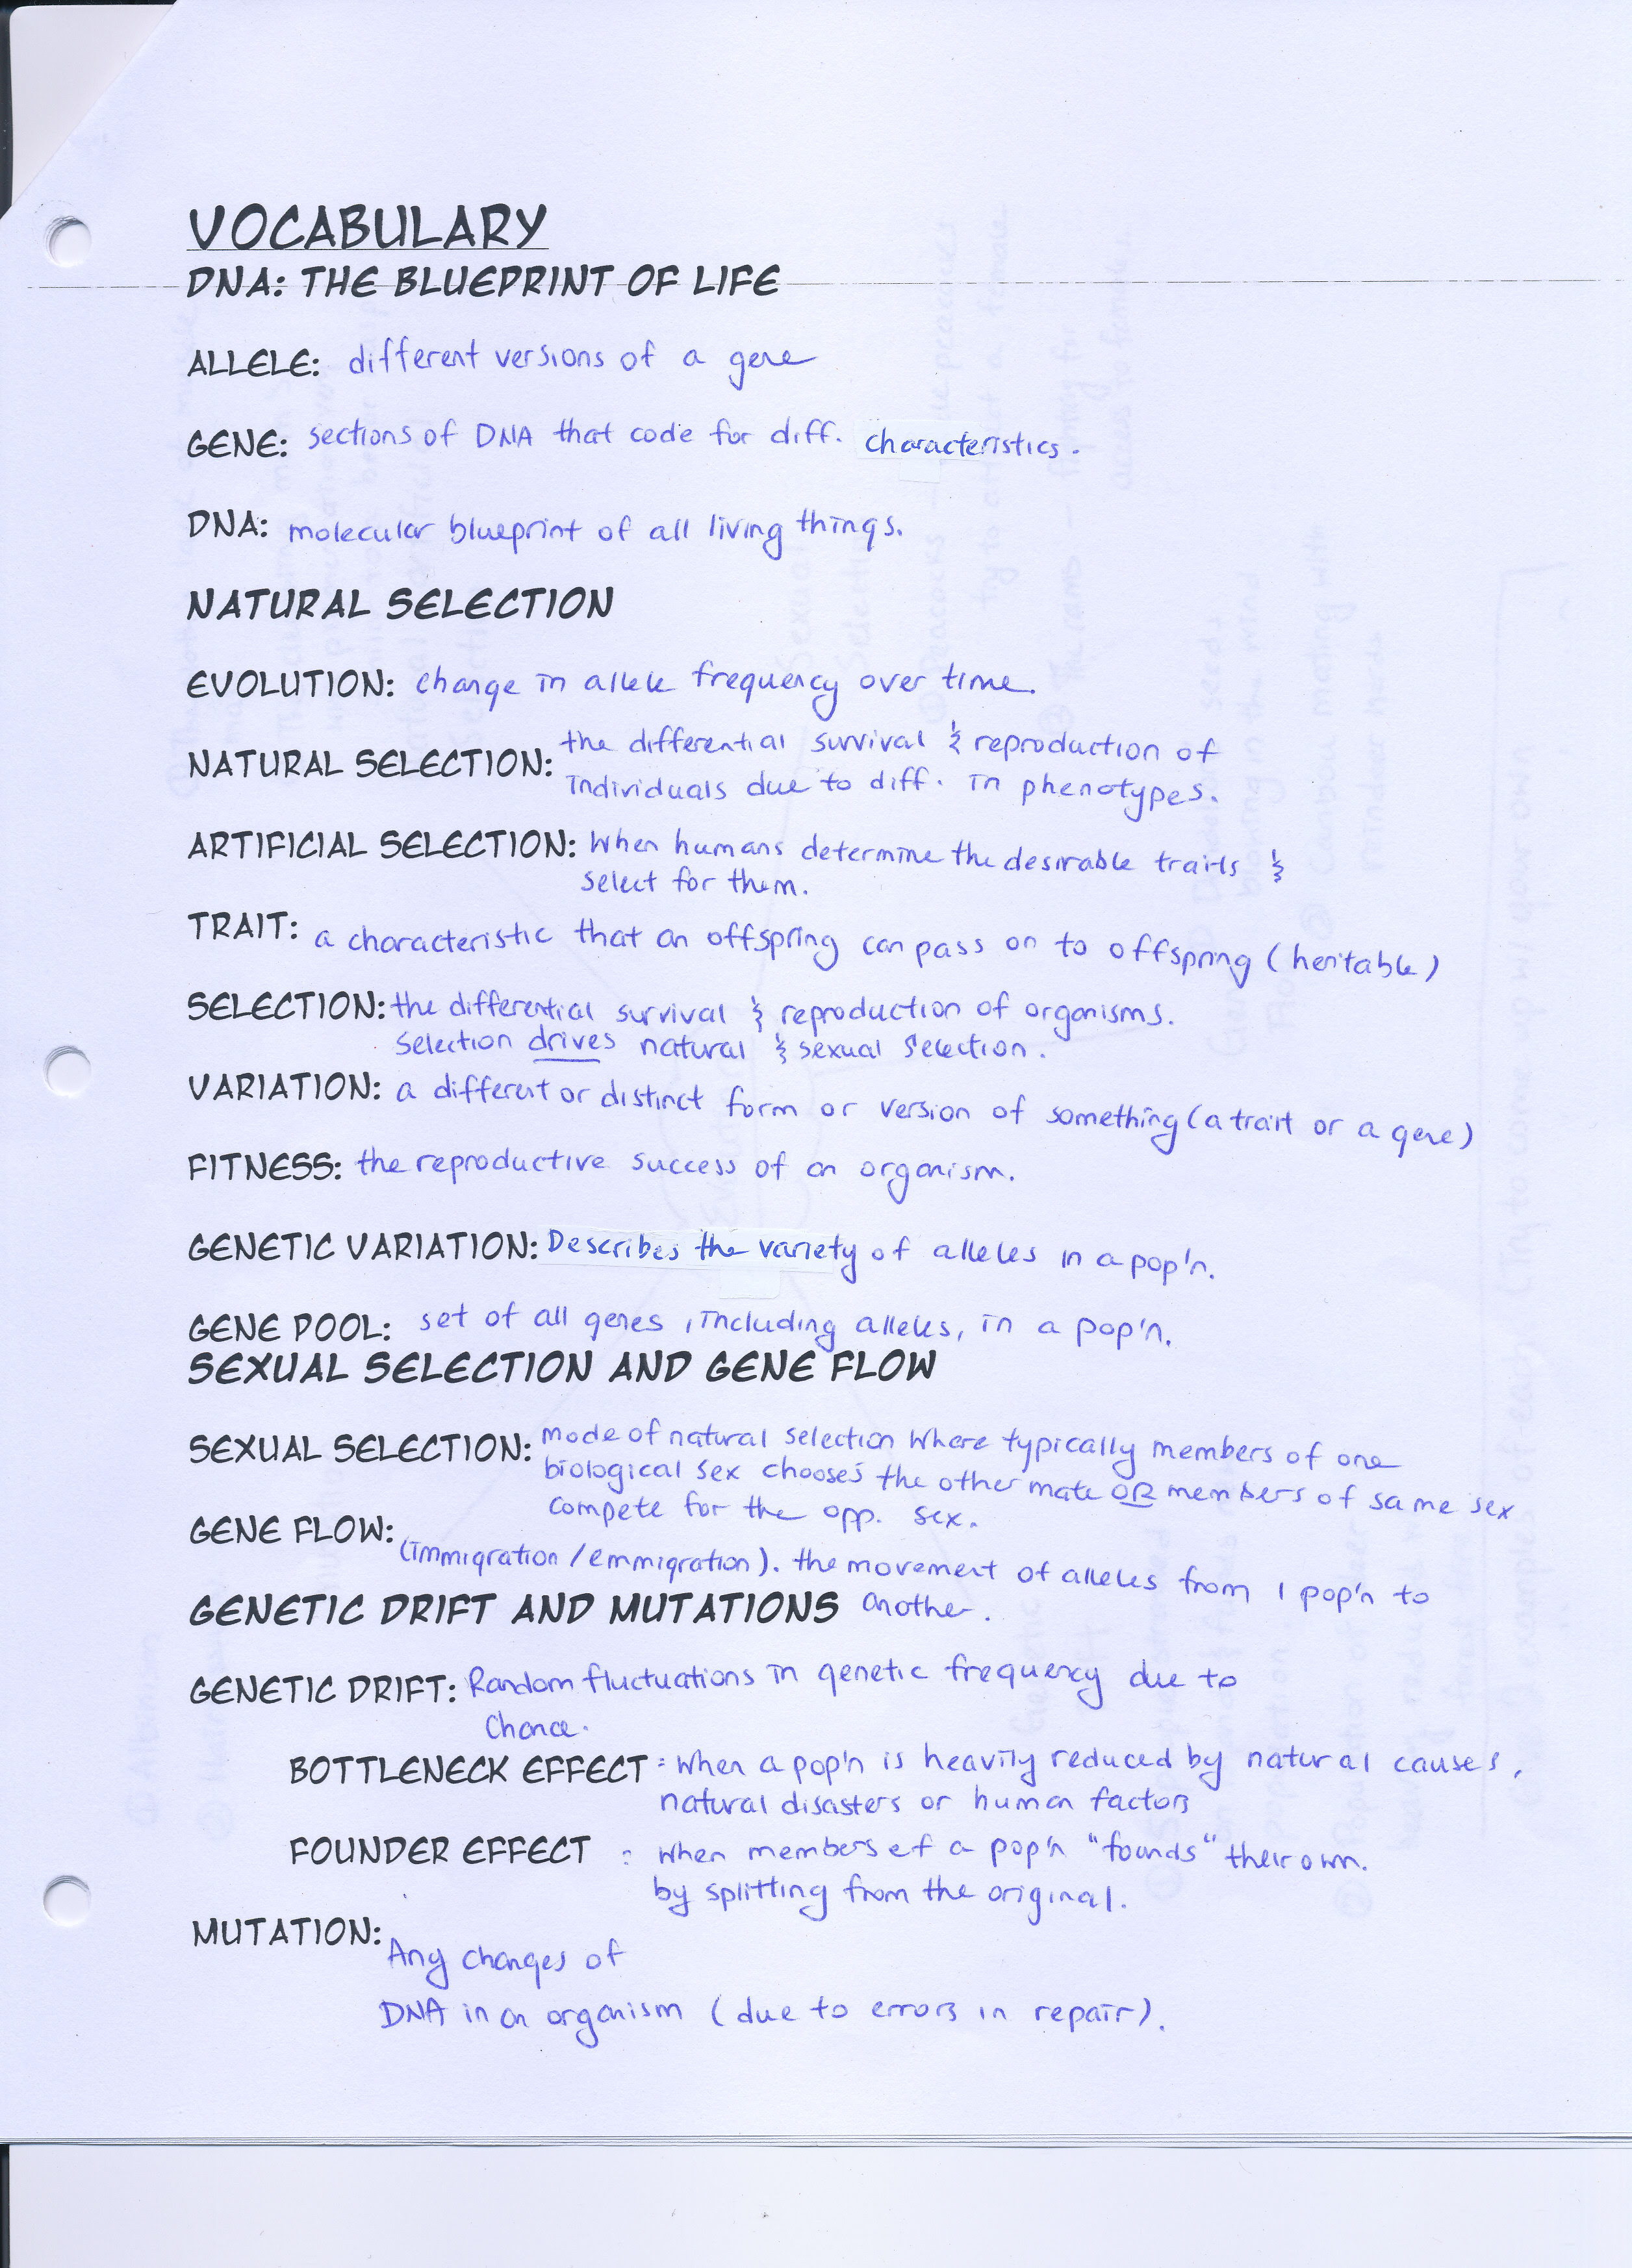 VOCABULARY
DNA: THE BLUEPRINT OF LIFE
ALLELE: different versions of a gene
GENE: sections of DNA that code for diff. characteristics.
DNA: molecular blueprint of all living things.
NATURAL SELECTION
EVOLUTION: change in allele frequency over time.
NATURAL SELECTION: the differential survival & reproduction of
individuals due to diff. in phenotypes.
ARTIFICIAL SELECTION: When humans determine the desirable traits &
select for them.
TRAIT: a characteristic that an offspring can pass on to offspring (heritable)
SELECTION: the differential survival & reproduction of organisms.
Selection drives natural & sexual selection.
VARIATION: a different or distinct form or version of something (a trait or a gene)
FITNESS: the reproductive success of an organism.
GENETIC VARIATION: Describes the variety of alleles in a pop'n.
GENE POOL: set of all genes, including alleles, in a pop'n.
SEXUAL SELECTION AND GENE FLOW
SEXUAL SELECTION: mode of natural selection where typically members of one
biological sex chooses the other mate OR members of same sex
compete for the opp. sex.
GENE FLOW: (immigration/emmigration). the movement of alleles from 1 pop'n to
another.
GENETIC DRIFT AND MUTATIONS
GENETIC DRIFT: Random fluctuations in genetic frequency due to
chance.
BOTTLENECK EFFECT: When a pop'n is heavily reduced by natural causes,
natural disasters or human factors
FOUNDER EFFECT: when members of a pop'n "founds" their own.
by splitting from the original.
MUTATION: Any changes of
DNA in an organism (due to errors in repair).